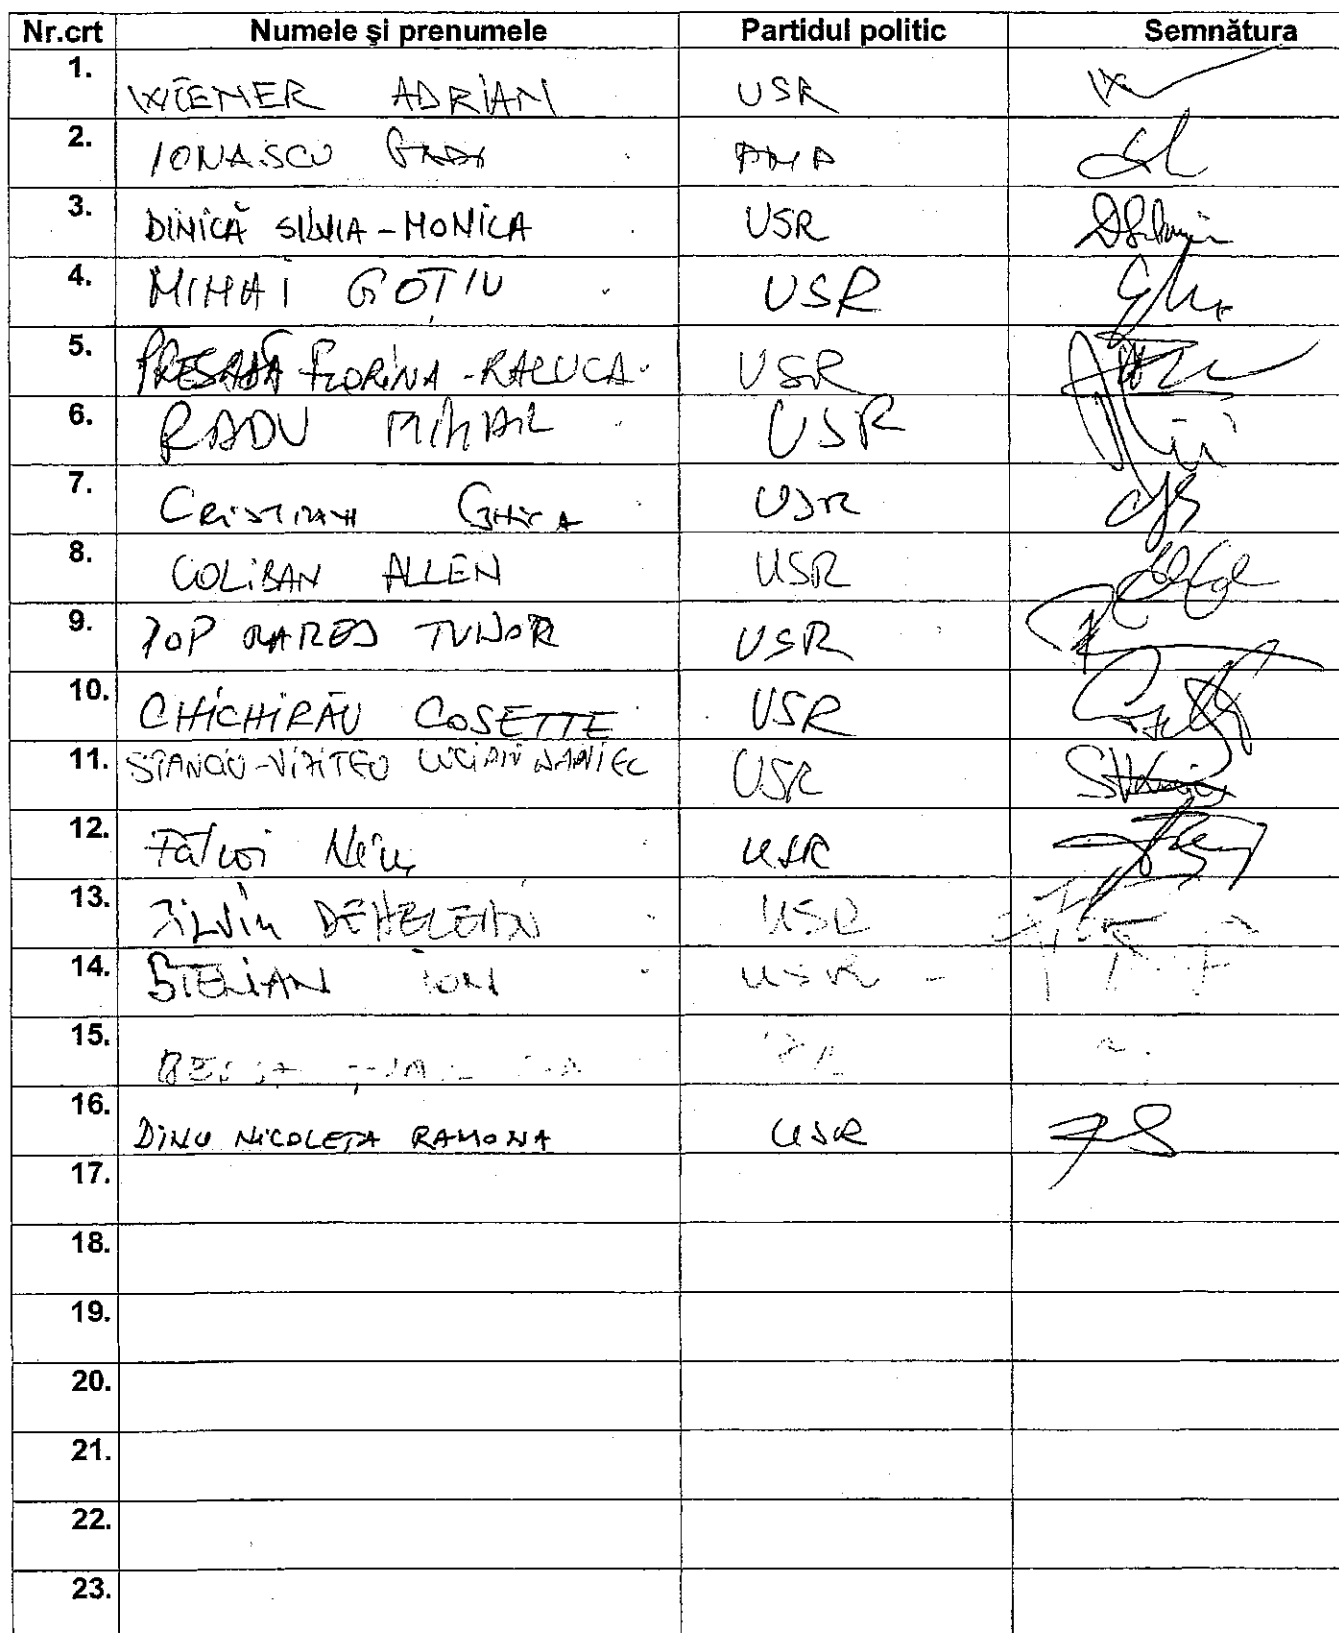 Nr.crt Numele şi prenumele Partidul politic Semnătura
1. WIENER ADRIAN USR
2. IONAŞCU PMP
3. DINICĂ SILVIA-MONICA USR
4. MIHAI GOȚIU USR
5. PRESADĂ FLORINA-RALUCA USR
6. RADU MIHAIL USR
7. CRISTIAN GHICA USR
8. COLIBAN ALLEN USR
9. POP RAREȘ TUDOR USR
10. CHICHIRĂU COSETTE USR
11. STANCIU-VIZITEU LUCIAN DANIEL USR
12. USR
13. SILVIU DEHELEAN USR
14. STELIAN ION USR
15.
16. DINU NICOLETA RAMONA USR
17.
18.
19.
20.
21.
22.
23.